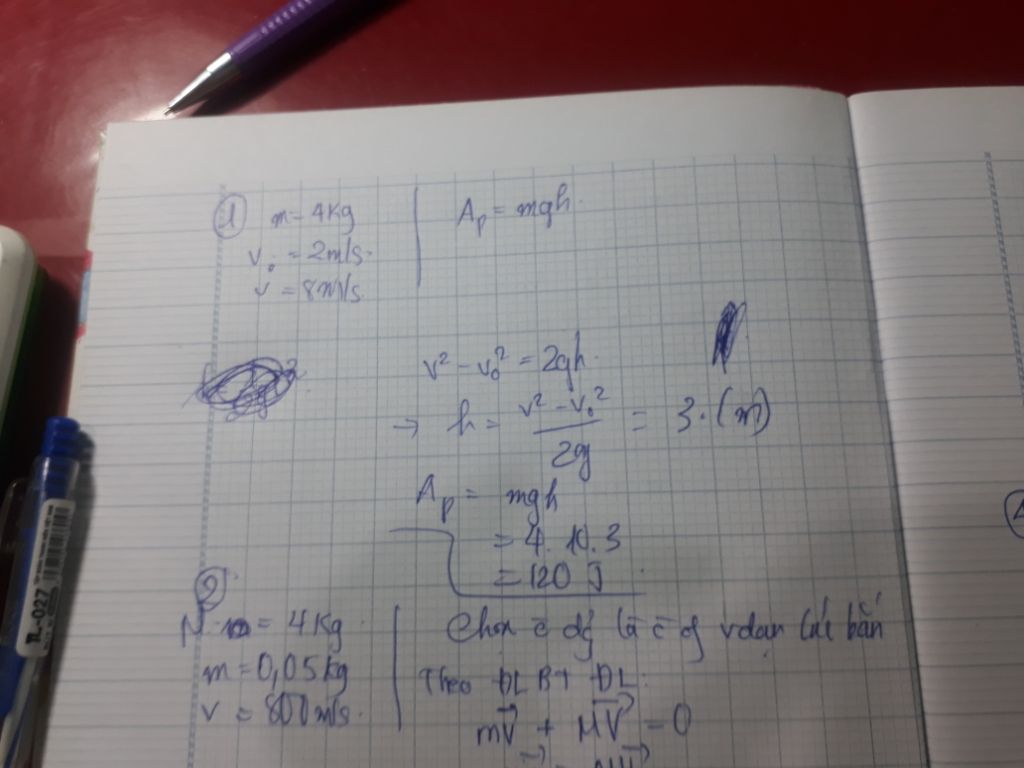 1 m = 4Kg
v₀ = 2m/s.
v = 8m/s.
Aₚ = mgh.
v² - v₀² = 2gh.
→ h = (v² - v₀²)/2g = 3. (m)
Aₚ = mgh
= 4. 10. 3
= 120 J
2
M = 4Kg
m = 0,05Kg
v = 800m/s.
Chọn c đg là c đg vđạn lúc bắn
Theo ĐLBT ĐL:
mv⃗ + MV⃗ = 0
TL-027